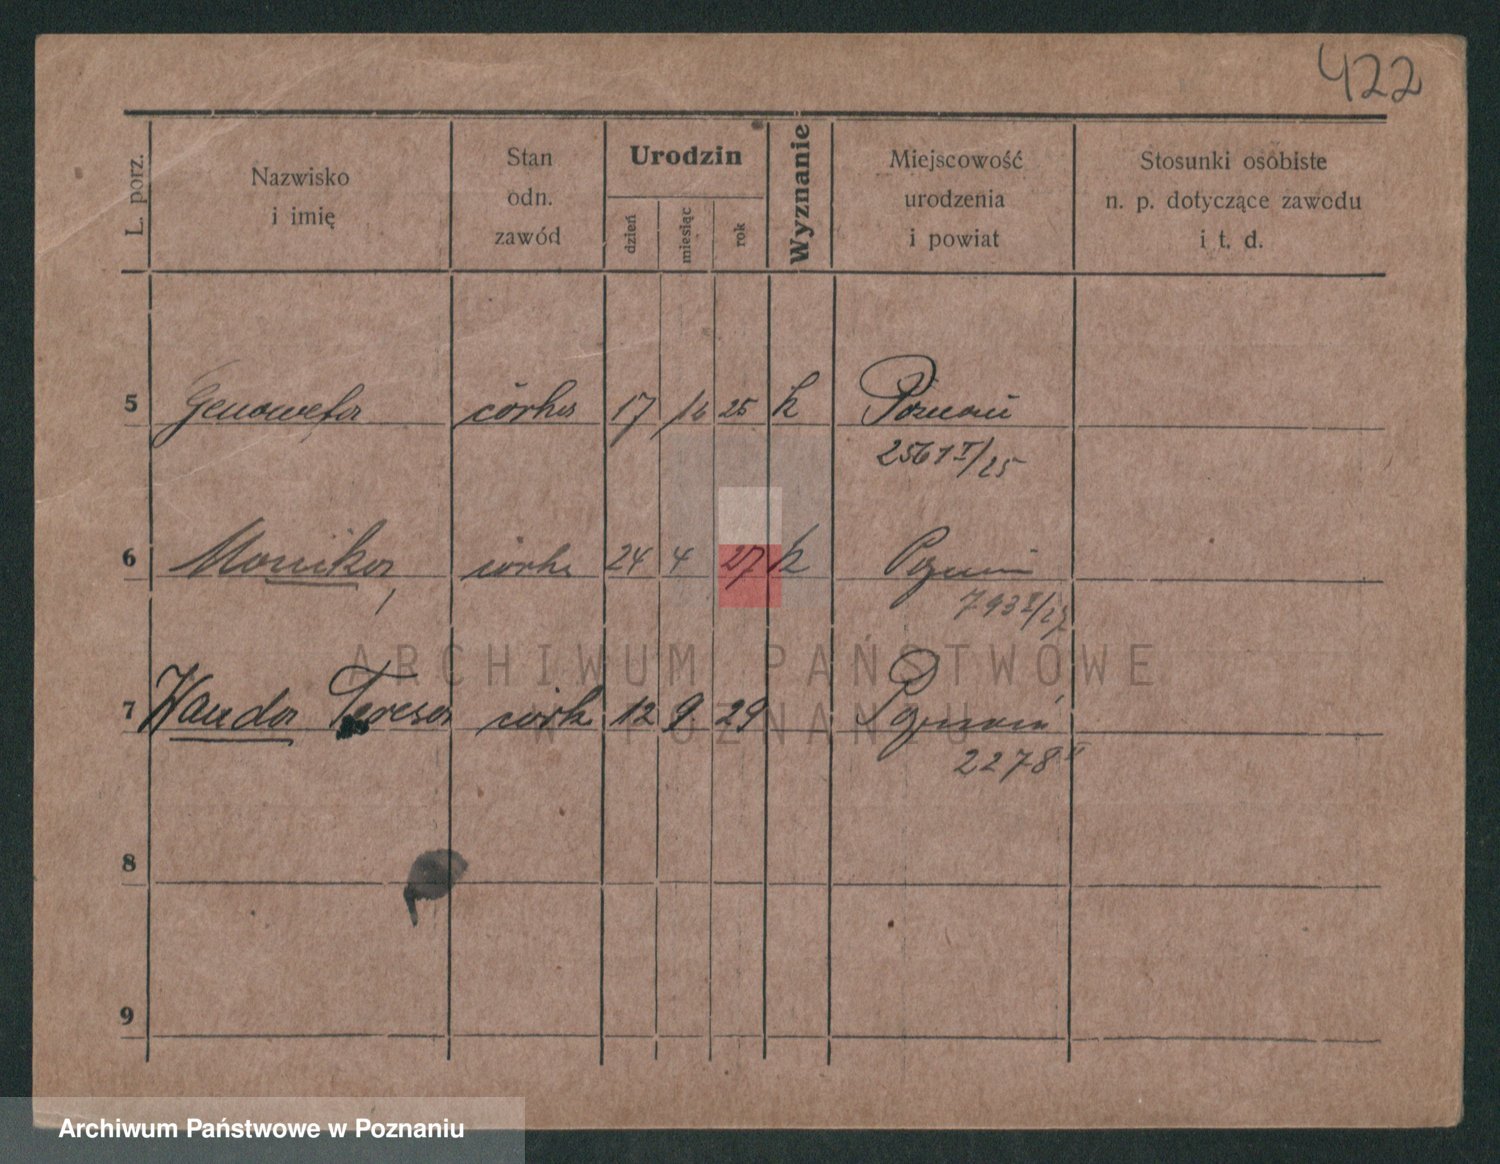 422
L. porz.
Nazwisko
i imię
Stan
odn.
zawód
Urodzin
dzień
miesiąc
rok
Wyznanie
Miejscowość
urodzenia
i powiat
Stosunki osobiste
n. p. dotyczące zawodu
i t. d.
5 Genowefa córka 17 25 k Poznań
2561 I/25
6 Monika córka 24 4 27 k Poznań
793 I/27
7 Wanda Teresa córk 12 9 29 Poznań
2278 II
8
9
ARCHIWUM PAŃSTWOWE
W POZNANIU
Archiwum Państwowe w Poznaniu